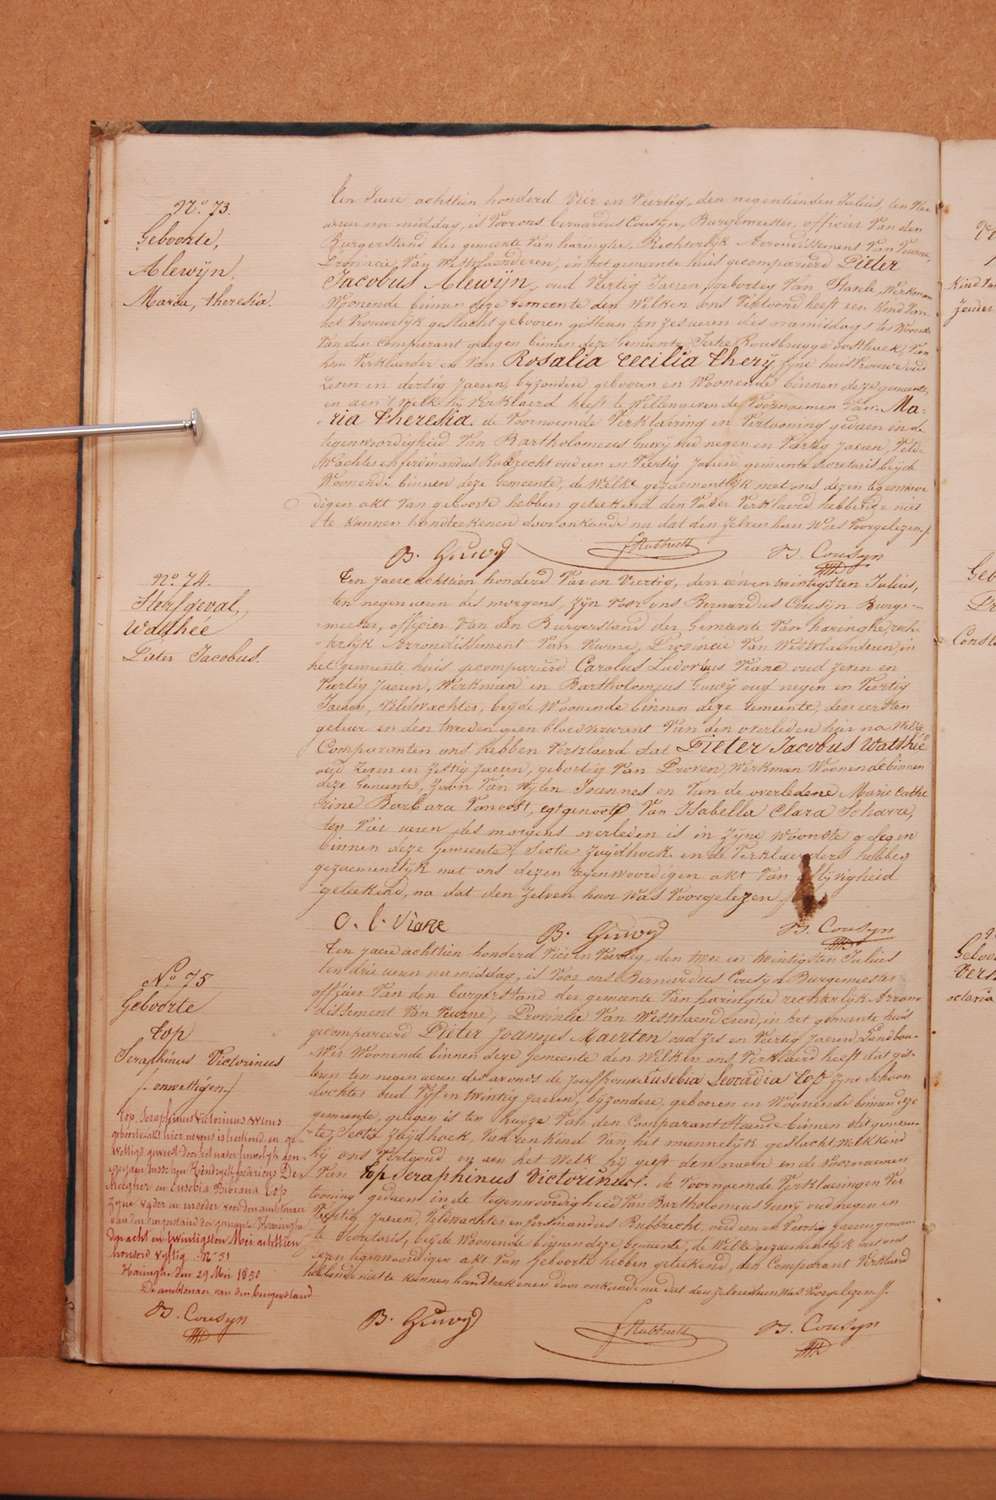 N.º 73.
Geboorte,
Alewÿn,
Maria, theresia.
Ten Jaere achttien honderd Vier en Viertig, den negentienden Julius, ten
uren voor middag, is Voor ons bernardus Cousÿn, Burgemeester, officier Van den
Burgerstand der gemeente Van haringhe, Rechterlÿk Arrondissement Van Veurne,
Provincie Van Westvlaenderen, in het gemeente huis gecompareerd Pieter
Jacobus Alewÿn, oud Veertig Jaeren geboortig Van Stavele, Werkman
Woonende binnen deze gemeente den Welken ons Vertoond heeft een Kind Van
het Vrouwelÿk geslacht gebooren gisteren ten zes uren des namiddags ter Woonste
Van den Comparant gelegen binnen deze Gemeente, Sectie Rousbrugge oosthoek, Van
hem Verklaerder en Van Rosalia Cecilia therÿ zyne huisvrouw oud
zeven en dertig Jaeren, byzondere, gebooren en Woonende binnen deze gemeente,
en aen 't Welk hÿ Verklaerd heeft te Willen geven de Voornaemen Van Ma-
ria theresia. de Voornoemde Verklaering en Vertooning gedaen in de
tegenwoordigheid Van Bartholomeus Guwÿ oud negen en Veertig Jaeren, Veld-
Wachter en ferdinandus Rubbrecht oud een en Veertig Jaeren gemeente Secretaris beÿde
Woonende binnen deze Gemeente, de Welke gezaementlÿk met ons dezen tegenwoor-
digen akt Van geboorte hebben geteekend den Vader Verklaerd hebbende niet
te kunnen handteekenen door onkunde na dat den Zelven hun Was Voorgelezen./
B. Guwÿ Rubbrecht B. Cousyn
N.º 74.
Sterfgeval,
Watthée
Pieter Jacobus.
Ten Jaere achttien honderd Vier en Viertig, den eenen twintigsten Julius,
ten negen uren des morgens, zÿn Voor ons Bernardus Cousÿn Burge-
meester, officier Van den Burgerstand der Gemeente Van haringhe, rech-
terlÿk Arrondissement Van Veurne, Provincie Van Westvlaenderen, in
het gemeente huis gecompareerd Carolus Ludovicus Viane oud zeven en
Veertig Jaeren, Werkman en Bartholomeus Guwÿ oud negen en Veertig
Jaeren, Veldwachter, beÿde Woonende binnen deze Gemeente, den eersten
gebuer en den tweeden geen bloedverwant Van den overleden hier na Welke
Comparanten ons hebben Verklaerd dat Pieter Jacobus Watthée
oud Zeven en Zestig Jaeren, geboortig Van Proven, Werkman Woonende binnen
deze Gemeente, Zoon Van wÿlen Joannes en Van de overledene Marie Cathe
rine Barbara Vanoost, egtgenoot Van Isabella Clara Scharre,
ten Vier uren des morgens overleden is in zÿne Woonste gelegen
binnen deze Gemeente, Sectie Zuÿdhoek en de Verklaerders hebben
gezaementlÿk met ons dezen tegenwoordigen akt Van aflÿvigheid
geteekend, na dat den Zelven hun Was Voorgelezen ./
C. L. Viane B. Guwÿ B. Cousyn
N.º 75
Geboorte
top
Seraphinus Victorinus
/onwettigen/
top, Seraphinus Victorinus Wiens
geboorteakt hier nevens is
Meegher en Eusebia Top
Zyne Vader en moeder voor den ambtenaer
van den burgerstand der gemeente Haringhe
den acht en twintigsten Mei achttien
honderd vyftig N.º 31
Haringhe den 29 Mei 1850
De ambtenaer van den burgerstand
B. Cousyn
Ten Jaere achttien honderd Vier en Viertig, den twee en twintigsten Julius
ten drie uren na middag, is Voor ons Bernardus Cousÿn Burgemeester
officier Van den burgerstand der gemeente Van haringhe rechterlÿk Arron-
dissement Van Veurne, Provintie Van Westvlaenderen, in het gemeente huis
gecompareerd Pieter Joannes Maerten oud Zes en Veertig Jaeren Landbou-
Wer Woonende binnen deze Gemeente den Welken ons Verklaerd heeft dat gis-
teren ten negen uren des avonds de Jouffrouw Eusebia Leocadia top zyne schoon
dochter oud Vÿf en twintig Jaeren, byzondere, gebooren en Woonende binnen deze
gemeente, gelegen is ten huyze Van den Comparant staende binnen dit gemeen-
te, Sectie Zuÿdhoek, Van een Kind Van het mannelÿk geslacht, welk kind
hÿ ons Vertoond en aen het Welk hÿ geeft den naem en de Voornaemen
Van top Seraphinus Victorinus/. de Voornoemde Verklaeringen Ver
tooning gedaen in de tegenwoordigheid Van Bartholomeus Guwÿ oud negen en
Veertig Jaeren, Veldwachter en ferdinandus Rubbrecht, oud een en Veertig Jaeren gemeen-
te Secretaris, beÿde Woonende binnen deze Gemeente, de Welke gezaementlÿk met ons
dezen tegenwoordigen akt Van geboorte hebben geteekend, den Comparant Verklaerd
hebbende niet te kunnen handteekenen door onkunde na dat den zelven hun Was Voorgelezen ./.
B. Guwÿ Rubbrecht B. Cousyn